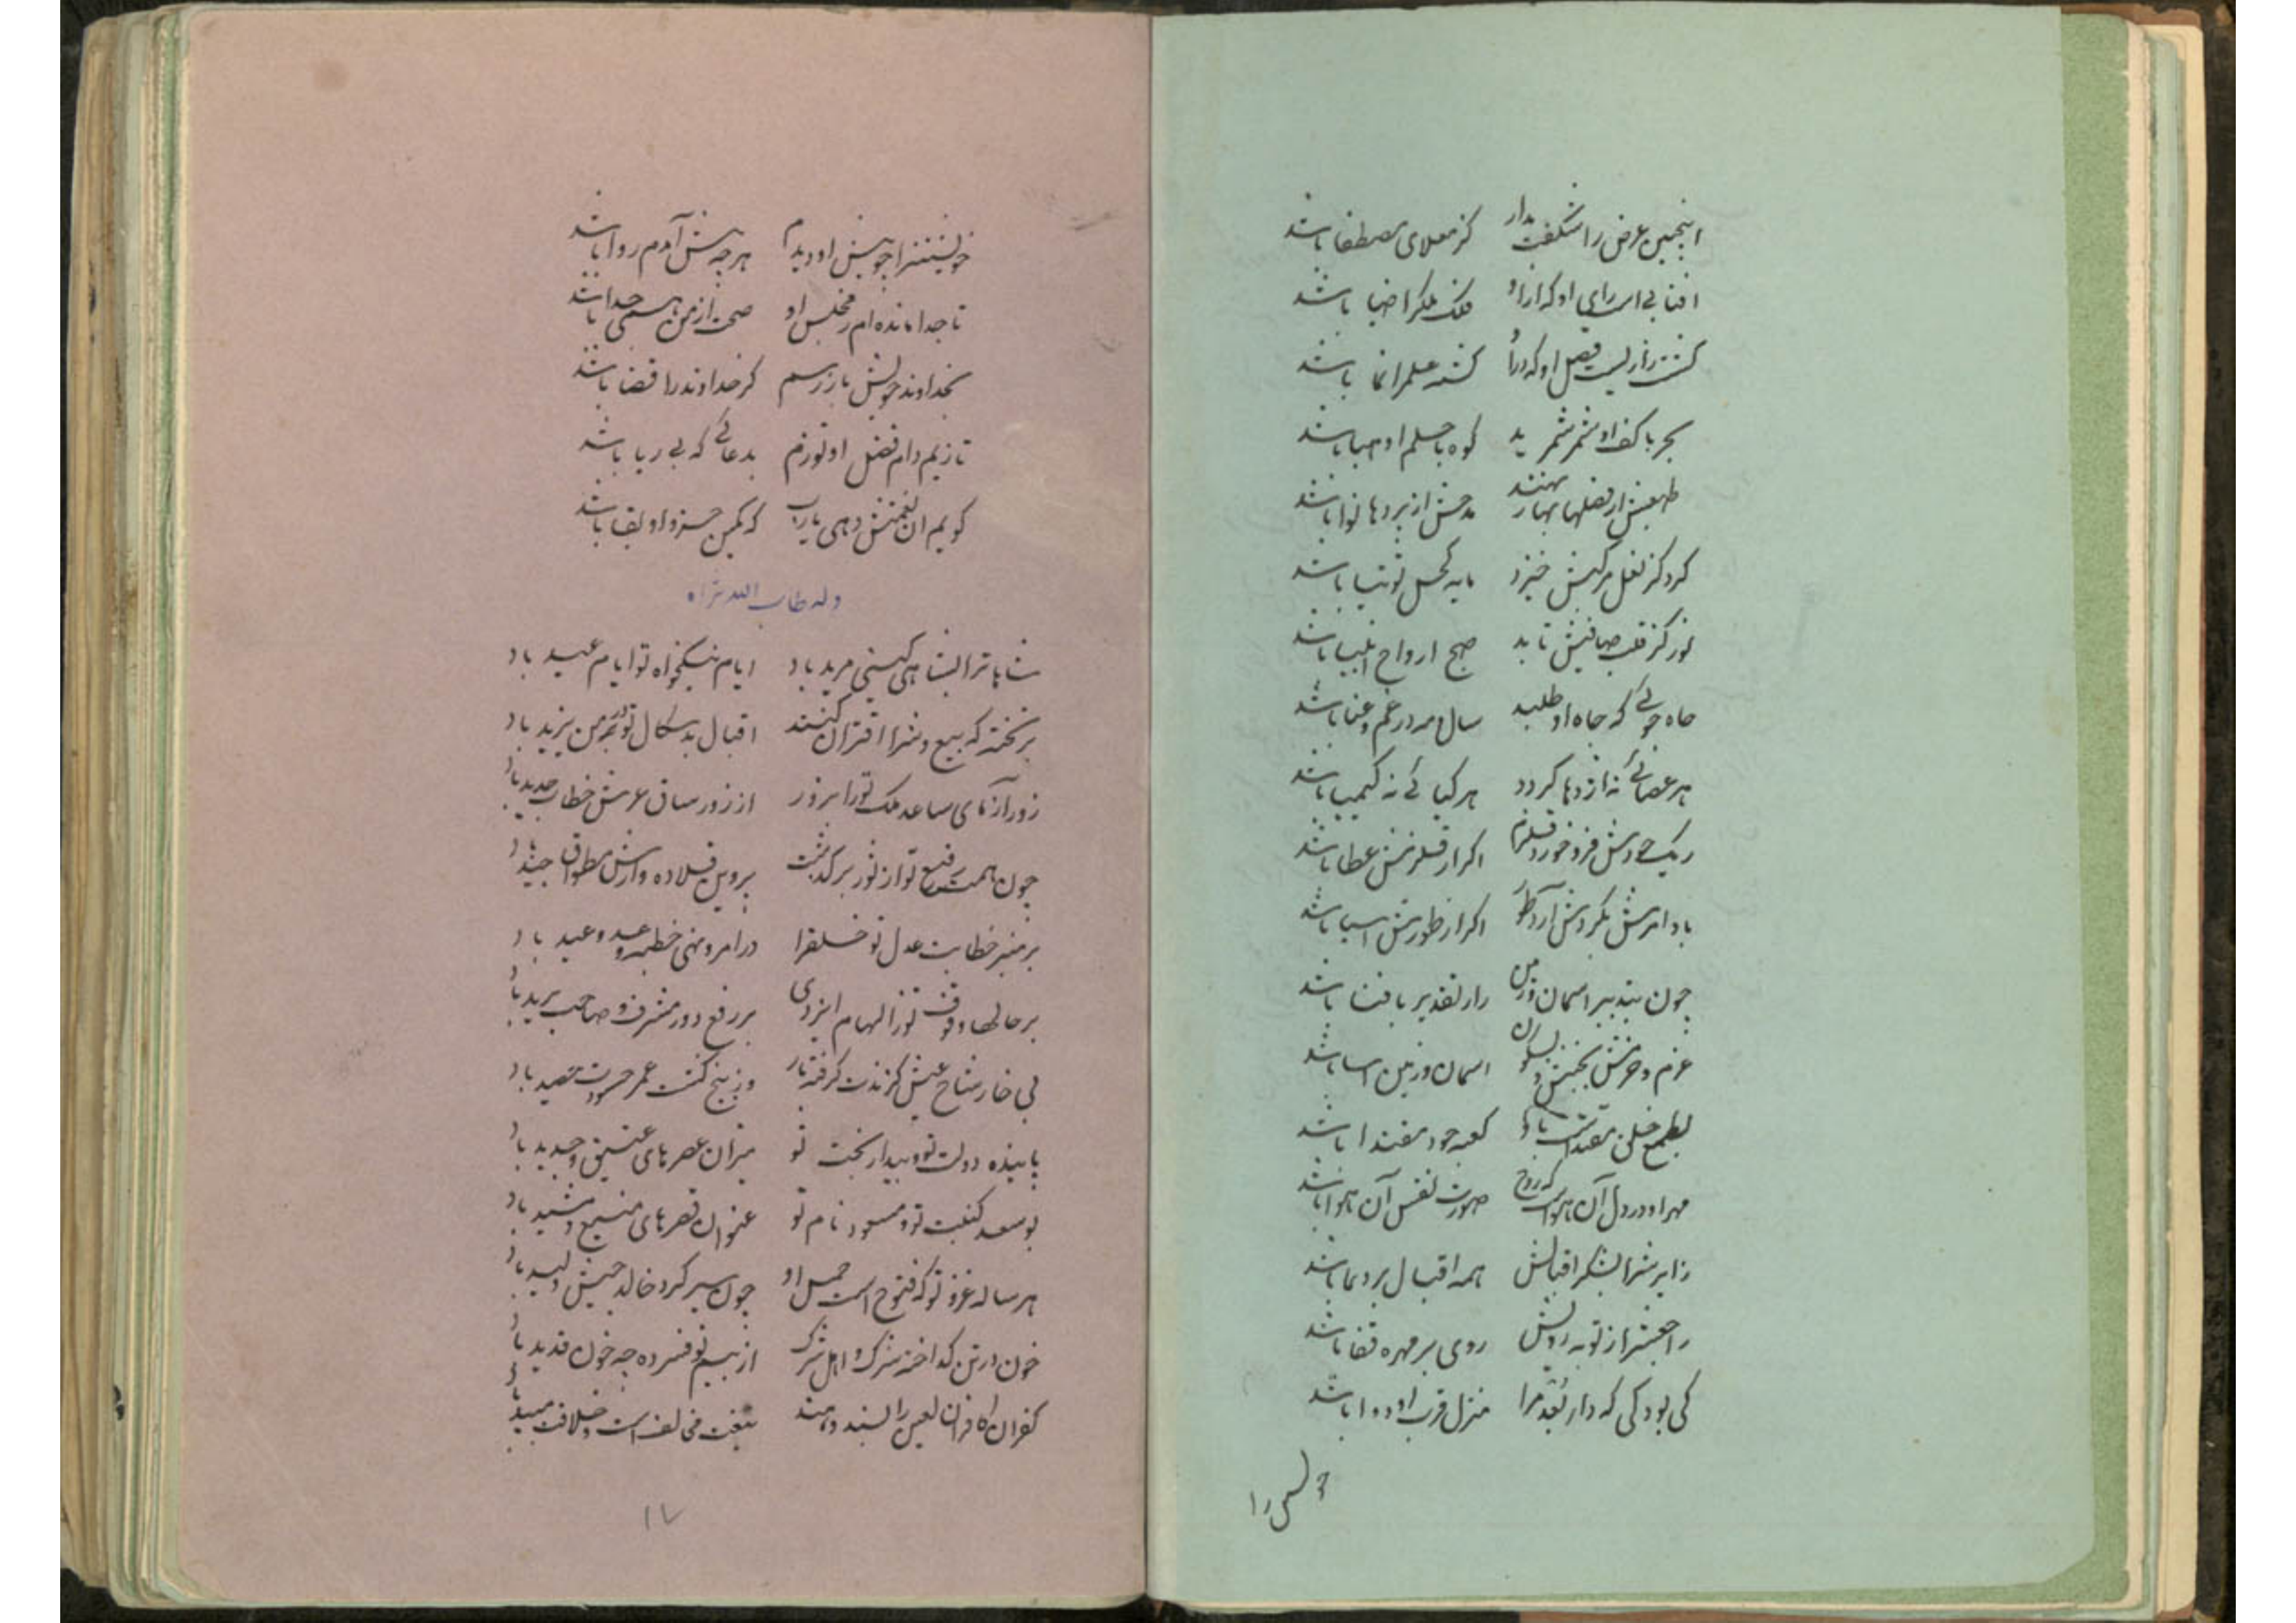 اینچنین عرض را شکفت مدار کز معلای مصطفا باشد
افتابی است رای او که ازو فلک ملک را ضیا باشد
کشت زاریست فضل او که درو کشته علم را نما باشد
بحر با کف او شمر شمرید کوه با حلم او هبا باشد
طبعش از فضلها بهار نهند مدحش از بردها نوا باشد
کرد کز نعل مرکبش خیزد مایه کحل توتیا باشد
نور کز قلب صافیش تابد صبح ارواح انبیا باشد
جاه جوئی که جاه او طلبد سال و مه در غم و عنا باشد
هر عصائی نه اژدها کردد هر کیائی نه کیمیا باشد
ریک جودش فرو خورد قلزم اکر از قلزمش عطا باشد
باد امرش بکردش آرد طور اکر از طورش اسیا باشد
چون بتدبیر اسمان و زمین راز تقدیر با فشا باشد
عزم و حزمش بجنبش و بسکون اسمان و زمین اسا باشد
بطمع خلق مقتدا باشد کعبه جود مقتدا باشد
مهر او در دل آن هواست که روح صورت نفس آن هوا باشد
زایرش را بشکر اقبالش همه اقبال بر دعا باشد
راجعش را ز توبه رویش روی بر مهره قفا باشد
کی بود کی که دار بعد مرا منزل قرب او دوا باشد
خویشتن را چو پیش او دیدم هر چه پیش آیدم روا باشد
تا جدا مانده ام ز مجلس او صحت از من همی جدا باشد
بخداوند خویش باز رسم کر خداوند را قضا باشد
تا زیم دام فضل او تورزم بدعائی که بی ریا باشد
کویم ان نعمتش دهی یارب که کمین جزو او بقا باشد
وله طاب الله ثراه
شاها ترا بشاهی کیتی مرید باد ایام نیکخواه تو ایام عید باد
بر تخته که بیع و شرا اقتران کنند اقبال بدسکال تو در من یزید باد
زور آزمای ساعد ملک تو را بزور از زور ساق عرش خطاب جدید باد
چون همت رفیع تو از ثور بر کذشت پروین قلاده وارش طواق جید باد
بر منبر خطابت عدل تو خلق را در امر و نهی خطبه وعد و وعید باد
بر حالها وقوف تو ز الهام ایزدی بر رفع دور مشرف و صاحب برید باد
بی خار شاخ عیش کزندت کرفته بار وز بیخ کشت عمر حسودت حصید باد
پاینده دولت تو و بیدار بخت تو میزان عصرهای عتیق و جدید باد
بوسعد کنیت تو و مسعود نام تو عنوان قصرهای منیع و مشید باد
هر ساله غزو تو که فتوح است حمل او چون سیر کرد خالد جیش ولید باد
خون در تن کداخته شرک و اهل شرک از بیم تو فسرده چه خون قدید باد
کفران کافران لعین را پسند و مند تیغت مخالف است و خلافت مبید باد
خویشتن را
۱۷